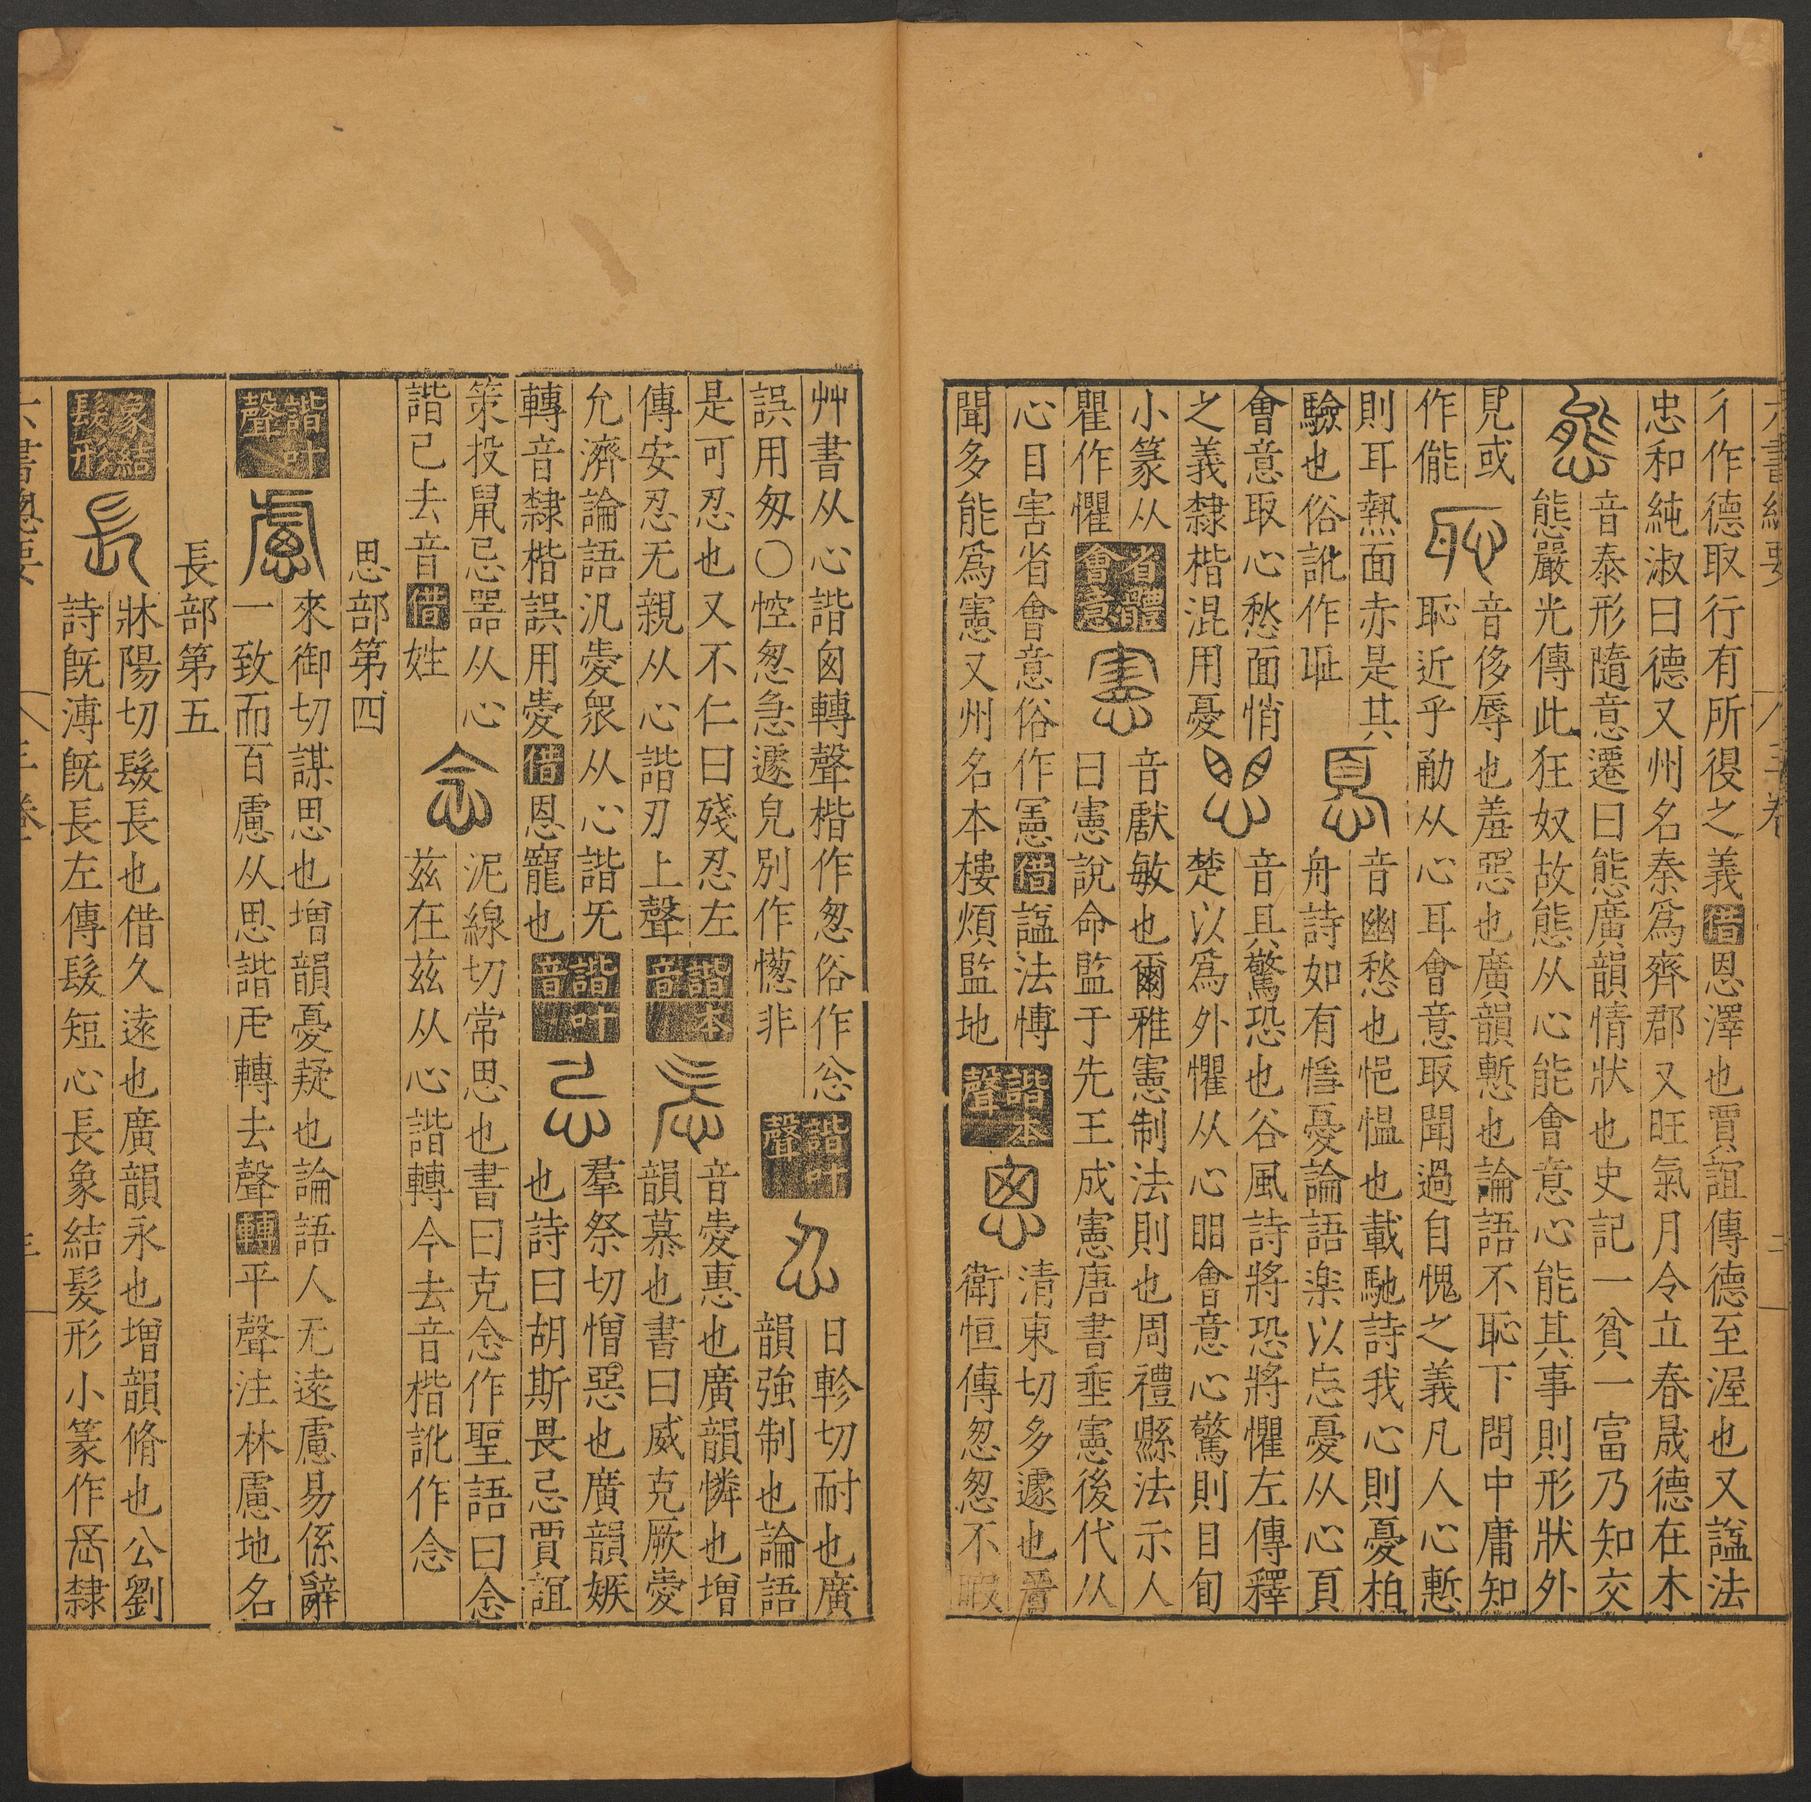 彳作德取行有所得之義借恩澤也賈誼傳德至渥也又諡法
忠和純淑曰德又州名秦爲齊郡又旺氣月令立春晟德在木
音泰形隨意遷曰態廣韻情狀也史記一貧一富乃知交
態嚴光傳此狂奴故態从心能會意心能其事則形狀外
見或
作能
音侈辱也羞惡也廣韻慙也論語不恥下問中庸知
恥近乎勈从心耳會意取聞過自愧之義凡人心慙
則耳熱面赤是其
驗也俗訛作耻
音幽愁也悒愠也載馳詩我心則憂柏
舟詩如有憂論語楽以忘憂从心頁
會意取心愁面悄
之義隸楷混用憂
音具驚恐也谷風詩將恐將懼左傳釋
楚以爲外懼从心䀠會意心驚則目旬
小篆从
瞿作懼
省體會意
音獻敏也爾雅憲制法則也周禮縣法示人
曰憲說命監于先王成憲唐書垂憲後代从
心目害省會意俗作憲借諡法博
聞多能爲憲又州名本樓煩監地
諧本聲
清東切多遽也晉
衛恒傳怱怱不暇
艸書从心諧囱轉聲楷作怱俗作忩
誤用匆〇悾怱急遽皃別作憽非
諧叶聲
日軫切耐也廣
韻強制也論語
是可忍也又不仁曰殘忍左
傳安忍无親从心諧刃上聲
諧本音
音㤅惠也廣韻憐也增
韻慕也書曰威克厥㤅
允濟論語汎㤅衆从心諧旡
轉音隸楷誤用愛借恩寵也
諧叶音
羣祭切憎惡也廣韻嫉
也詩曰胡斯畏忌賈誼
策投鼠忌器从心
諧已去音借姓
泥線切常思也書曰克念作聖語曰念
茲在茲从心諧轉今去音楷訛作念
思部第四
諧叶聲
來御切謀思也增韻憂疑也論語人无遠慮易係辭
一致而百慮从思諧虍轉去聲轉平聲注林慮地名
長部第五
象結髮形
牀陽切髮長也借久遠也廣韻永也增韻脩也公劉
詩旣溥旣長左傳髮短心長象結髮形小篆作镸隸